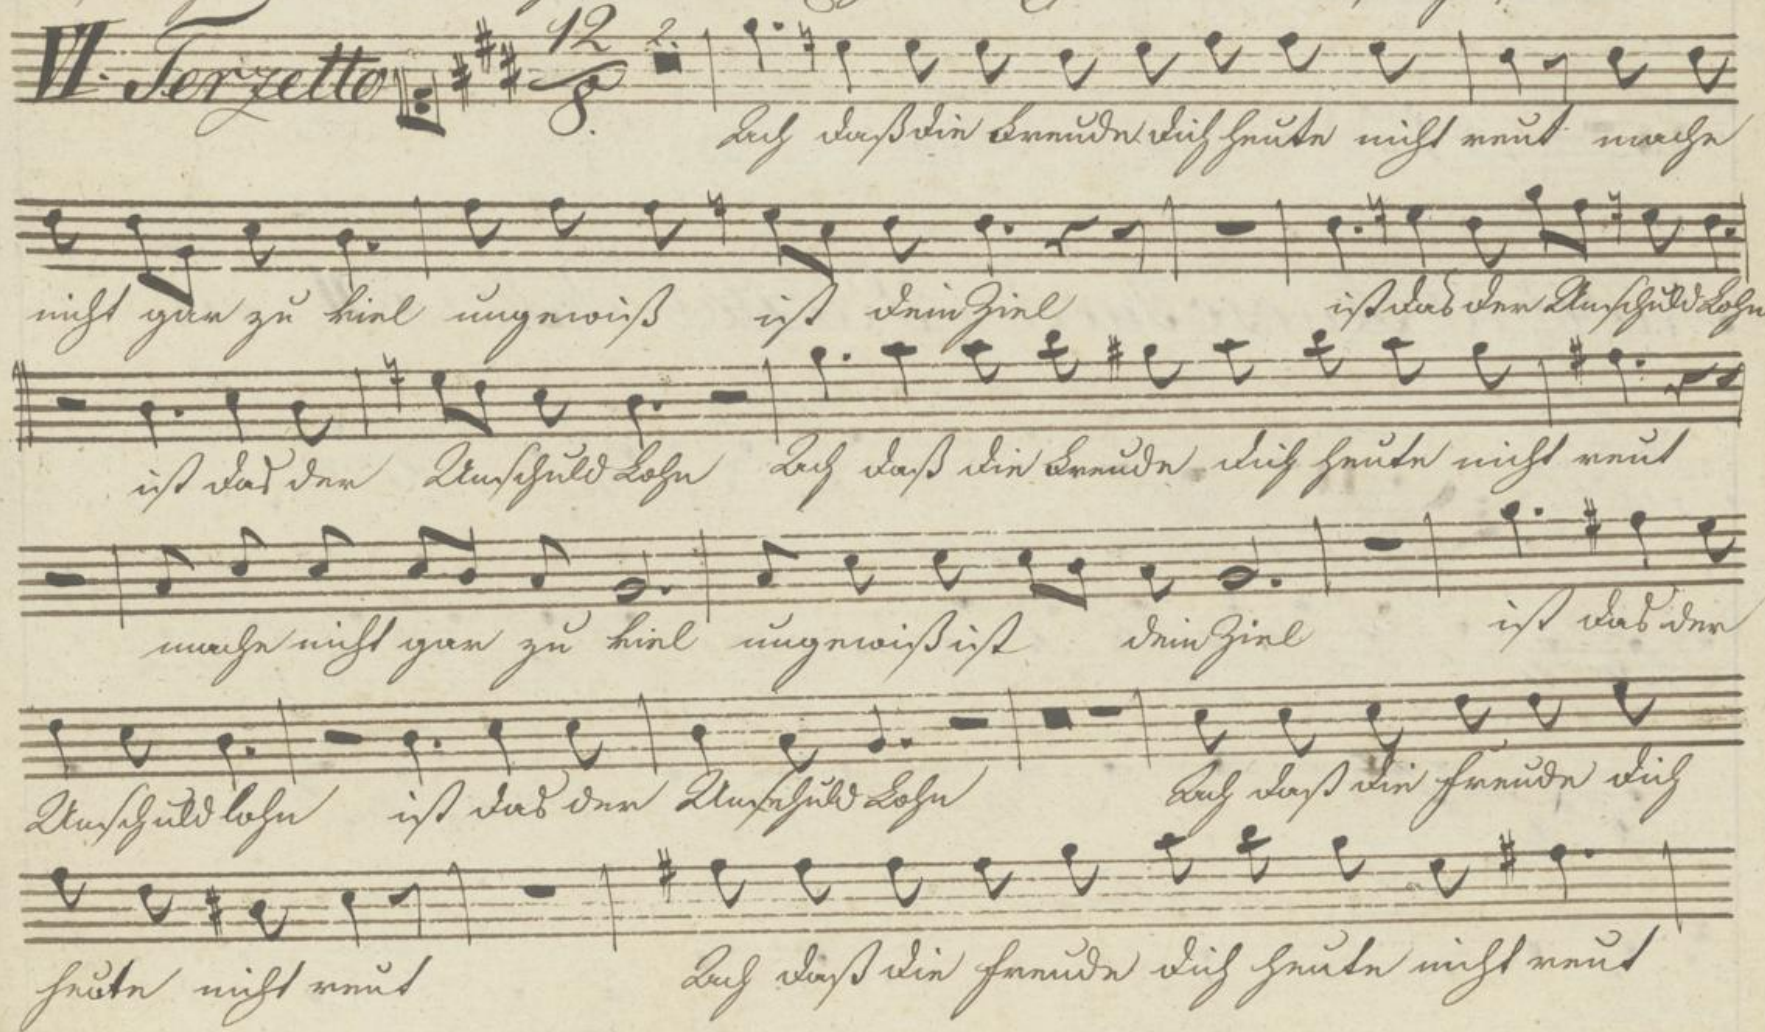 VI. Terzetto 12/8. 2.
Ach daß die Freude dich heute nicht reut mache
nicht gar zu viel ungewiß ist dein Ziel ist das der Unschuld Lohn
ist das der Unschuld Lohn Ach daß die Freude dich heute nicht reut
mache nicht gar zu viel ungewiß ist dein Ziel ist das der
Unschuld lohn ist das der Unschuld Lohn Ach daß die freude dich
heute nicht reut Ach daß die freude dich heute nicht reut